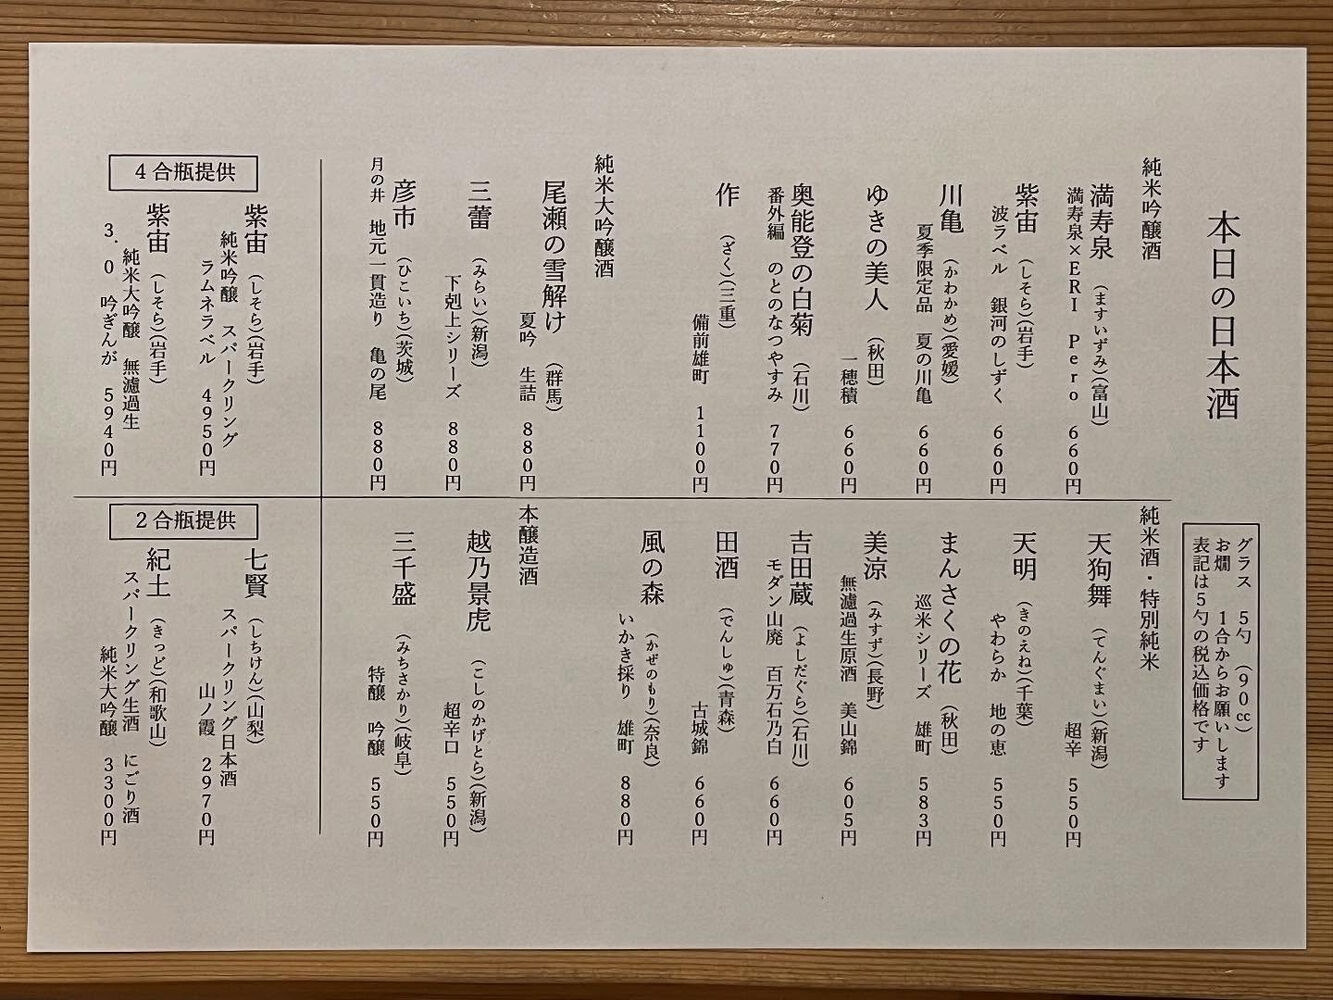 本日の日本酒
グラス　5勺　(90㏄)
お燗　1合からお願いします
表記は5勺の税込価格です
純米吟醸酒
満寿泉　(ますいずみ)(富山)
満寿泉×ERI Pero　660円
紫宙　(しそら)(岩手)
波ラベル　銀河のしずく　660円
川亀　(かわかめ)(愛媛)
夏季限定品　夏の川亀　660円
ゆきの美人　(秋田)
一穂積　660円
奥能登の白菊　(石川)
番外編　のとのなつやすみ　770円
作　(ざく)(三重)
備前雄町　1100円
純米大吟醸酒
尾瀬の雪解け　(群馬)
夏吟　生詰　880円
三蕾　(みらい)(新潟)
下剋上シリーズ　880円
彦市　(ひこいち)(茨城)
月の井　地元一貫造り　亀の尾　880円
純米酒・特別純米
天狗舞　(てんぐまい)(新潟)
超辛　550円
天明　(きのえね)(千葉)
やわらか　地の恵　550円
まんさくの花　(秋田)
巡米シリーズ　雄町　583円
美涼　(みすず)(長野)
無濾過生原酒　美山錦　605円
吉田蔵　(よしだぐら)(石川)
モダン山廃　百万石乃白　660円
田酒　(でんしゅ)(青森)
古城錦　660円
風の森　(かぜのもり)(奈良)
いかき採り　雄町　880円
本醸造酒
越乃景虎　(こしのかげとら)(新潟)
超辛口　550円
三千盛　(みちさかり)(岐阜)
特醸　吟醸　550円
4合瓶提供
紫宙　(しそら)(岩手)
純米吟醸　スパークリング
ラムネラベル　4950円
紫宙　(しそら)(岩手)
純米大吟醸　無濾過生
3.0　吟ぎんが　5940円
2合瓶提供
七賢　(しちけん)(山梨)
スパークリング日本酒
山ノ霞　2970円
紀土　(きっど)(和歌山)
スパークリング生酒　にごり酒
純米大吟醸　3300円